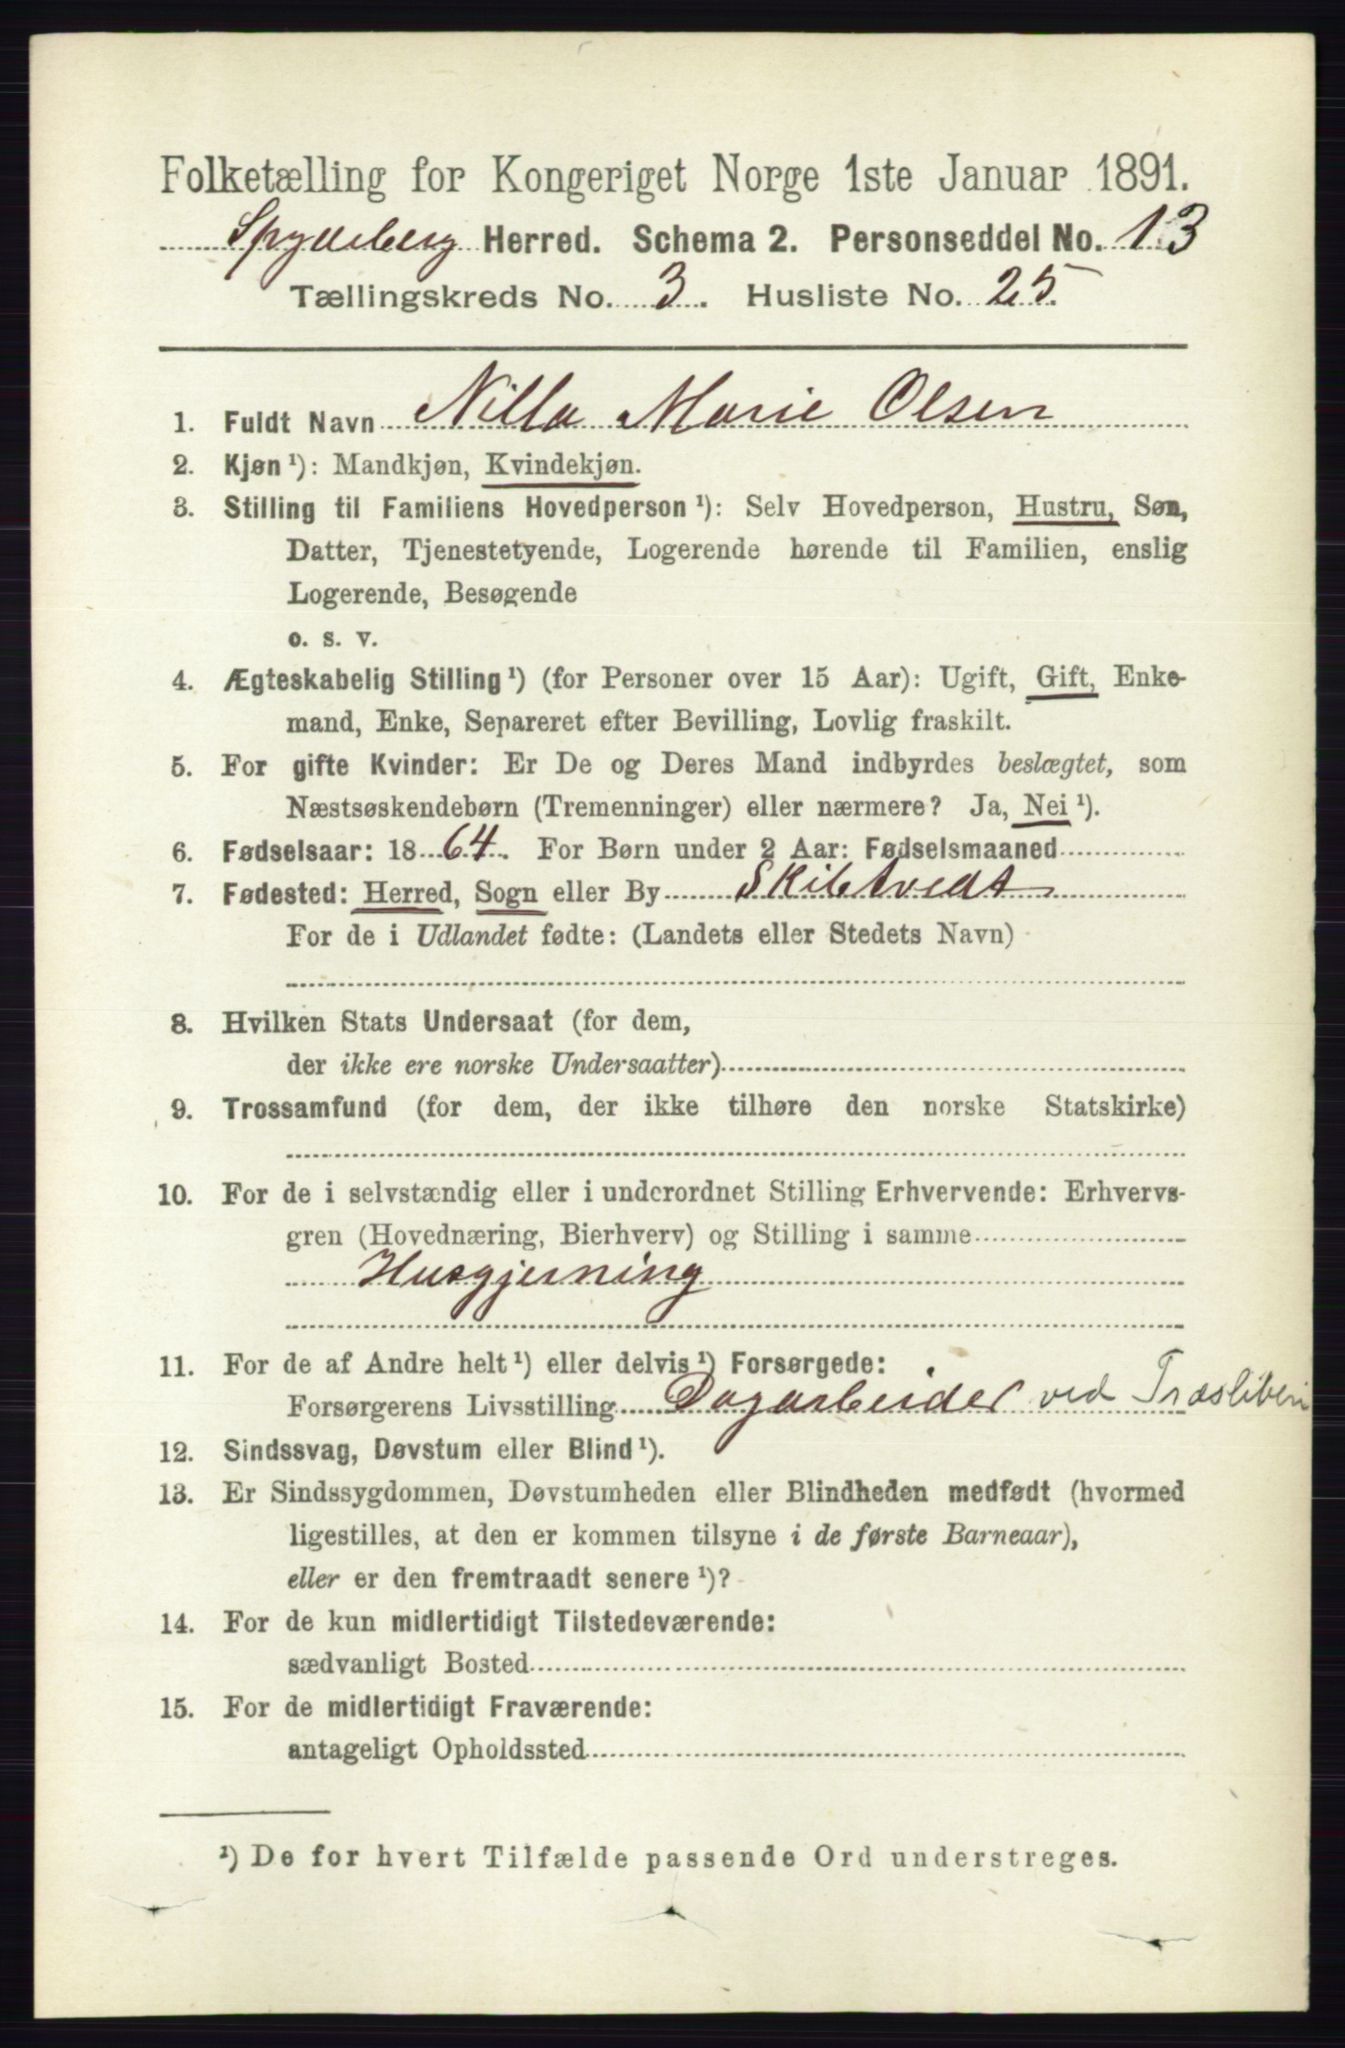 Folketælling for Kongeriget Norge 1ste Januar 1891.
Spydeberg Herred. Schema 2. Personseddel No. 13
Tællingskreds No. 3. Husliste No. 25.
1. Fuldt Navn Nilla Marie Olsen
2. Kjøn ¹): Mandkjøn, Kvindekjøn.
3. Stilling til Familiens Hovedperson ¹): Selv Hovedperson, Hustru, Søn,
Datter, Tjenestetyende, Logerende hørende til Familien, enslig
Logerende, Besøgende
o. s. v.
4. Ægteskabelig Stilling ¹) (for Personer over 15 Aar): Ugift, Gift, Enke-
mand, Enke, Separeret efter Bevilling, Lovlig fraskilt.
5. For gifte Kvinder: Er De og Deres Mand indbyrdes beslægtet, som
Næstsøskendebørn (Tremenninger) eller nærmere? Ja, Nei ¹).
6. Fødselsaar: 1864. For Børn under 2 Aar: Fødselsmaaned
7. Fødested: Herred, Sogn eller By Skibtvedt
For de i Udlandet fødte: (Landets eller Stedets Navn)
8. Hvilken Stats Undersaat (for dem,
der ikke ere norske Undersaatter)
9. Trossamfund (for dem, der ikke tilhøre den norske Statskirke)
10. For de i selvstændig eller i underordnet Stilling Erhvervende: Erhvervs-
gren (Hovednæring, Bierhverv) og Stilling i samme
Husgjerning
11. For de af Andre helt ¹) eller delvis ¹) Forsørgede:
Forsørgerens Livsstilling Dagarbeider ved Træsliberi
12. Sindssvag, Døvstum eller Blind ¹).
13. Er Sindssygdommen, Døvstumheden eller Blindheden medfødt (hvormed
ligestilles, at den er kommen tilsyne i de første Barneaar),
eller er den fremtraadt senere ¹)?
14. For de kun midlertidigt Tilstedeværende:
sædvanligt Bosted
15. For de midlertidigt Fraværende:
antageligt Opholdssted
¹) De for hvert Tilfælde passende Ord understreges.